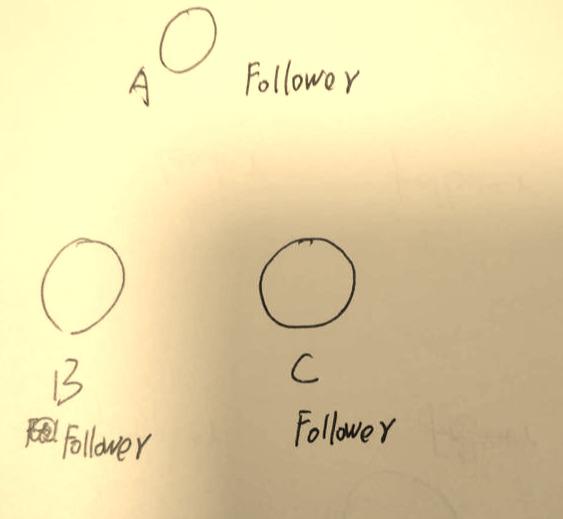 A
Follower
B
Follower
C
Follower